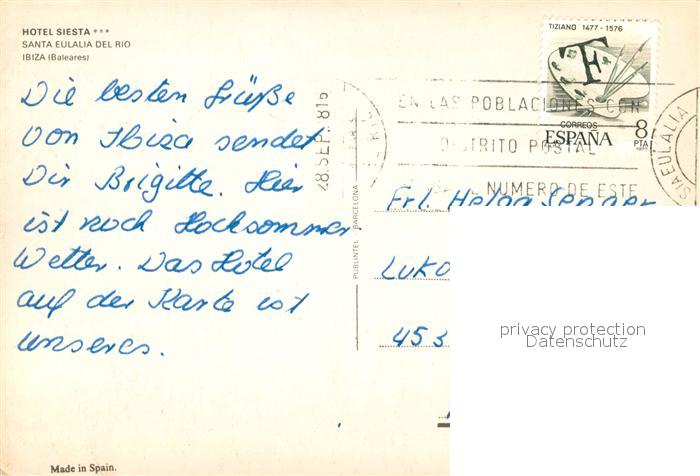 HOTEL SIESTA ***
SANTA EULALIA DEL RIO
IBIZA (Baleares)
Die besten Grüße
von Ibiza sendet
Dir Brigitte. Hier
ist noch Hochsommer
Wetter. Das Hotel
auf der Karte ist
unseres.
Made in Spain.
PUBLINTEL BARCELONA
28.SEP.
TIZIANO 1477-1576
T
CORREOS
ESPAÑA 8
PTA
1977
EN LAS POBLACIONES CON
DISTRITO POSTAL
NUMERO DE ESTE
EULALIA
Frl. Helga
453
privacy protection
Datenschutz